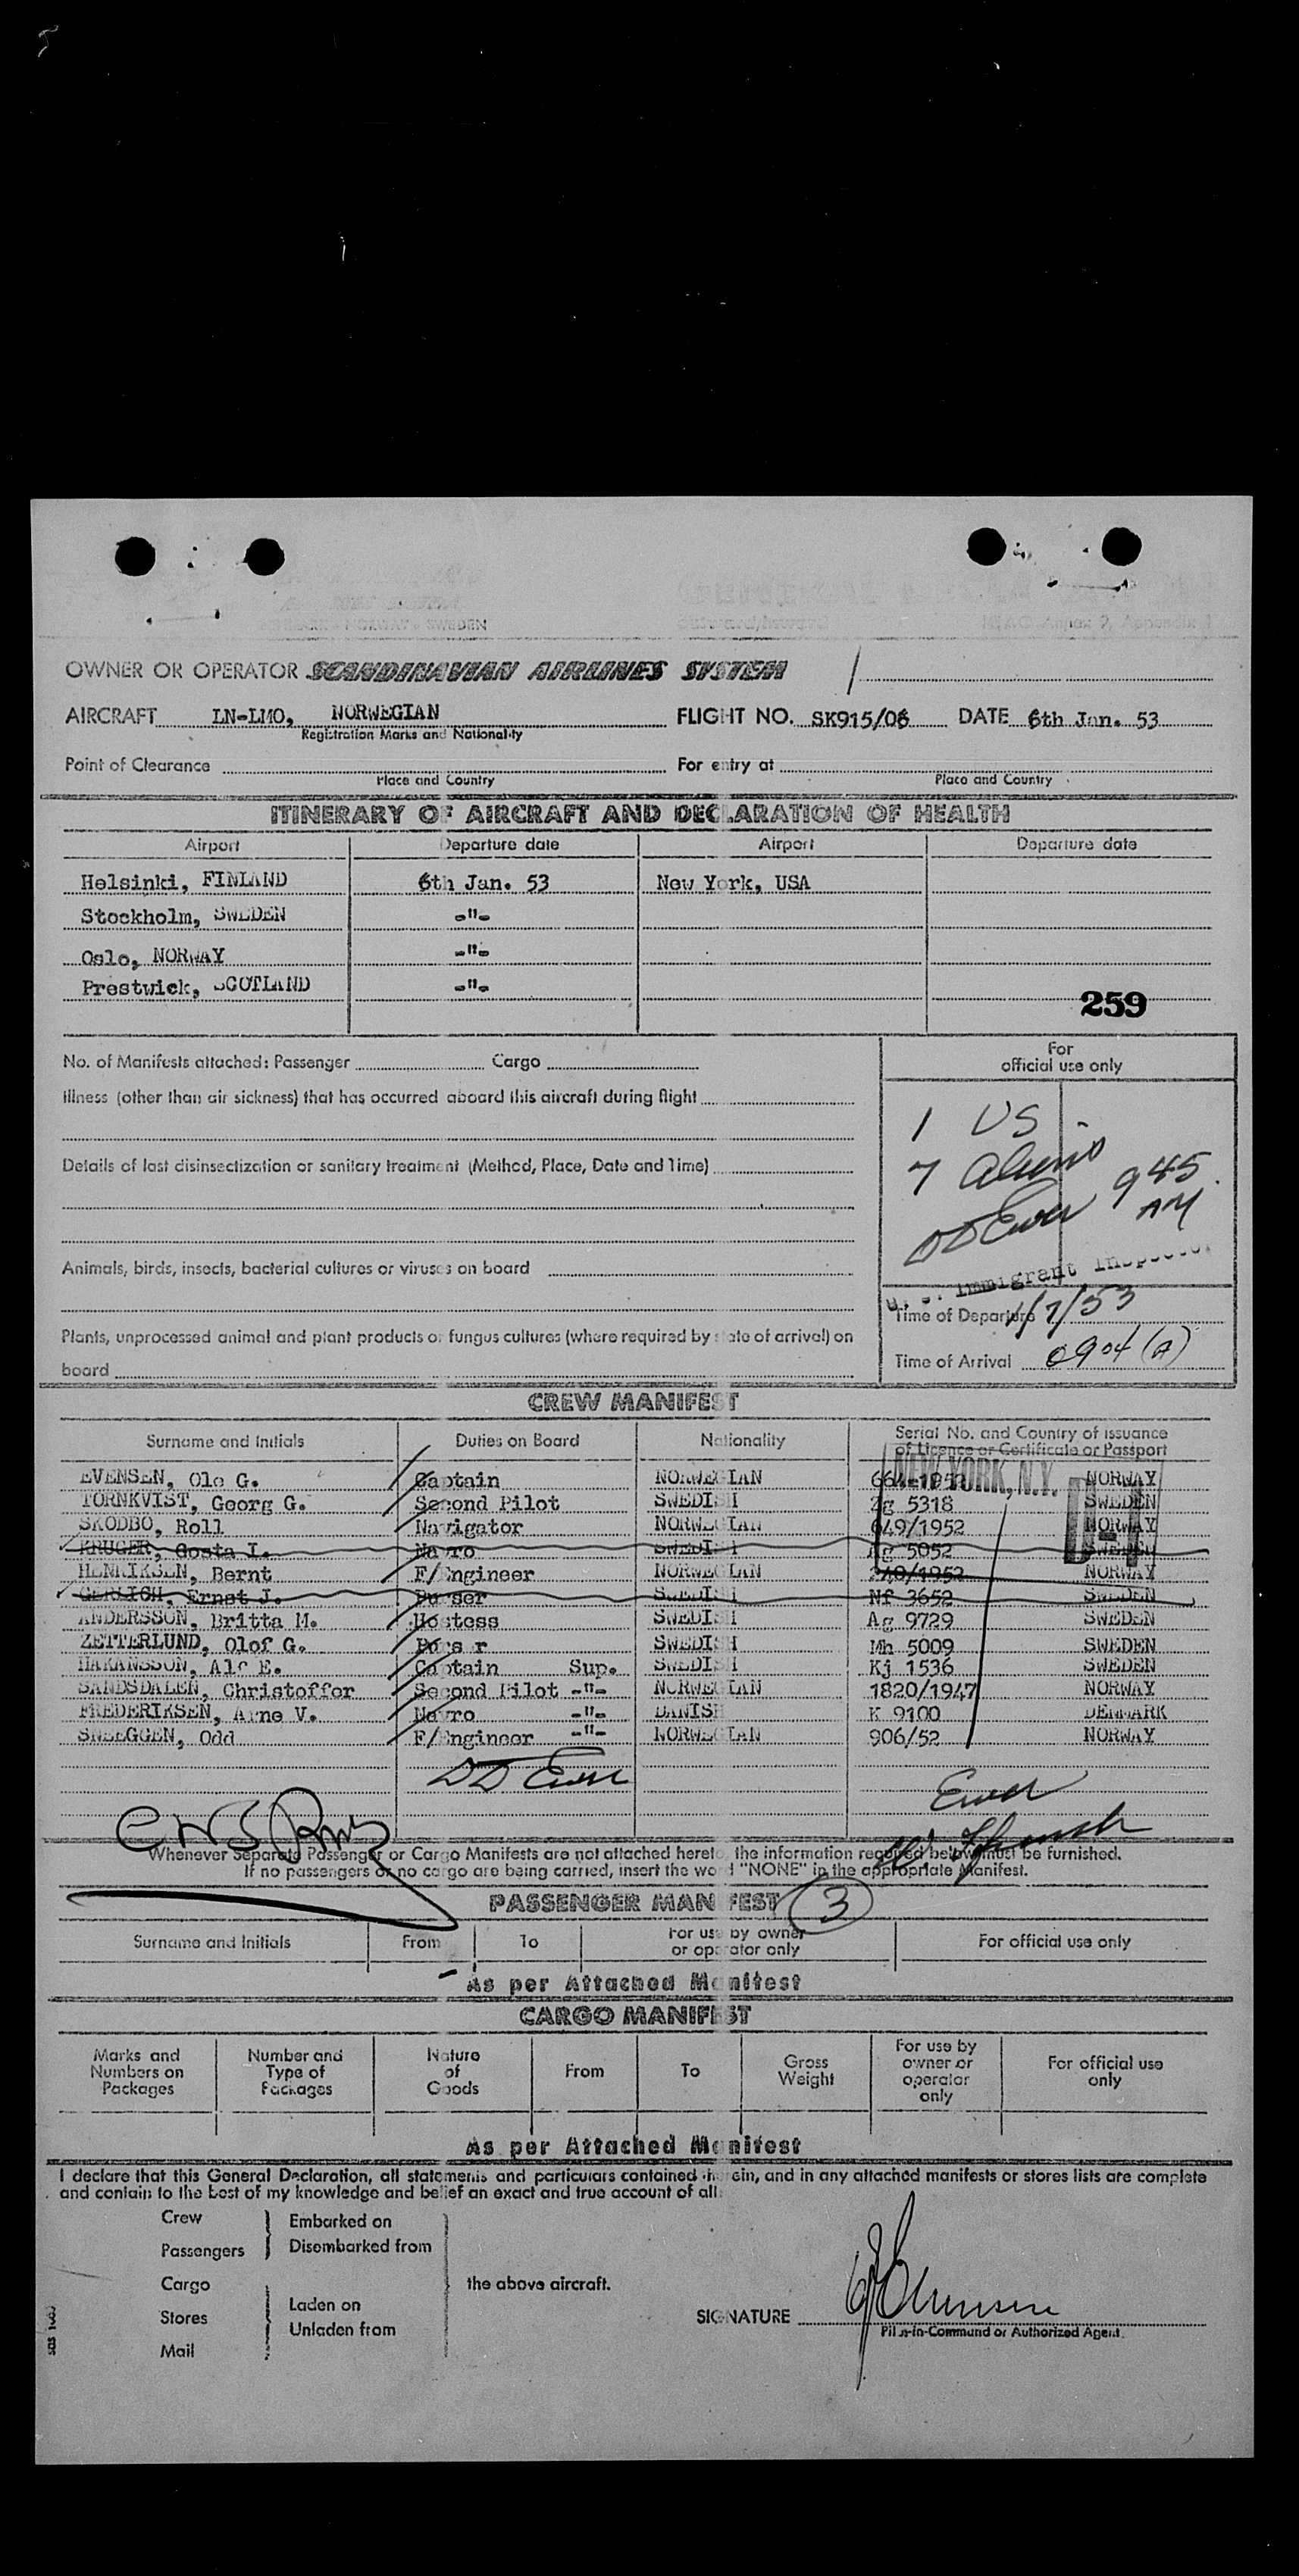 OWNER OR OPERATOR SCANDINAVIAN AIRLINES SYSTEM
AIRCRAFT LN-LMO, NORWEGIAN FLIGHT NO. SK915/06 DATE 6th Jan. 53
Registration Marks and Nationality
Point of Clearance For entry at
Place and Country Place and Country
ITINERARY OF AIRCRAFT AND DECLARATION OF HEALTH
Airport Departure date Airport Departure date
Helsinki, FINLAND 6th Jan. 53 New York, USA
Stockholm, SWEDEN -"-
Oslo, NORWAY -"-
Prestwick, SCOTLAND -"-
259
No. of Manifests attached: Passenger Cargo
For
official use only
Illness (other than air sickness) that has occurred aboard this aircraft during flight
1 US
Details of last disinsectization or sanitary treatment (Method, Place, Date and Time)
7 aliens
945
AM
DD Ewer
Animals, birds, insects, bacterial cultures or viruses on board
U. S. Immigrant Inspector
Time of Departure 1/7/53
Plants, unprocessed animal and plant products or fungus cultures (where required by state of arrival) on
board
Time of Arrival 0904 (A)
CREW MANIFEST
Surname and Initials Duties on Board Nationality Serial No. and Country of issuance
of Licence or Certificate or Passport
NEW YORK, N.Y.
EVENSEN, Ole G. Captain NORWEGIAN 664-1952 NORWAY
TORNKVIST, Georg G. Second Pilot SWEDISH Zg 5318 SWEDEN
SKODBO, Roll Navigator NORWEGIAN 649/1952 NORWAY
KRUGER, Gosta I. Navro SWEDISH Ag 5052 SWEDEN
HENRIKSEN, Bernt F/Engineer NORWEGIAN /1952 NORWAY
GERLICH, Ernst J. Purser SWEDISH Nf 3652 SWEDEN
ANDERSSON, Britta M. Hostess SWEDISH Ag 9729 SWEDEN
ZETTERLUND, Olof G. Purser SWEDISH Mh 5009 SWEDEN
HAKANSSON, Alf E. Captain Sup. SWEDISH Kj 1536 SWEDEN
SANDSDALEN, Christoffer Second Pilot -"- NORWEGIAN 1820/1947 NORWAY
FREDERIKSEN, Arne V. Navro -"- DANISH K 9100 DENMARK
SNEEGGEN, Odd F/Engineer -"- NORWEGIAN 906/52 NORWAY
DD Ewer
Ewer
Whenever Separate Passenger or Cargo Manifests are not attached hereto, the information required below must be furnished.
If no passengers or no cargo are being carried, insert the word "NONE" in the appropriate Manifest.
PASSENGER MANIFEST 3
Surname and Initials From To For use by owner
or operator only For official use only
As per Attached Manifest
CARGO MANIFEST
Marks and
Numbers on
Packages Number and
Type of
Packages Nature
of
Goods From To Gross
Weight For use by
owner or
operator
only For official use
only
As per Attached Manifest
I declare that this General Declaration, all statements and particulars contained herein, and in any attached manifests or stores lists are complete
and contain to the best of my knowledge and belief an exact and true account of all:
Crew Embarked on
Passengers Disembarked from
Cargo the above aircraft.
Stores Laden on
Unladen from
Mail
SIGNATURE
Pilot-in-Command or Authorized Agent.